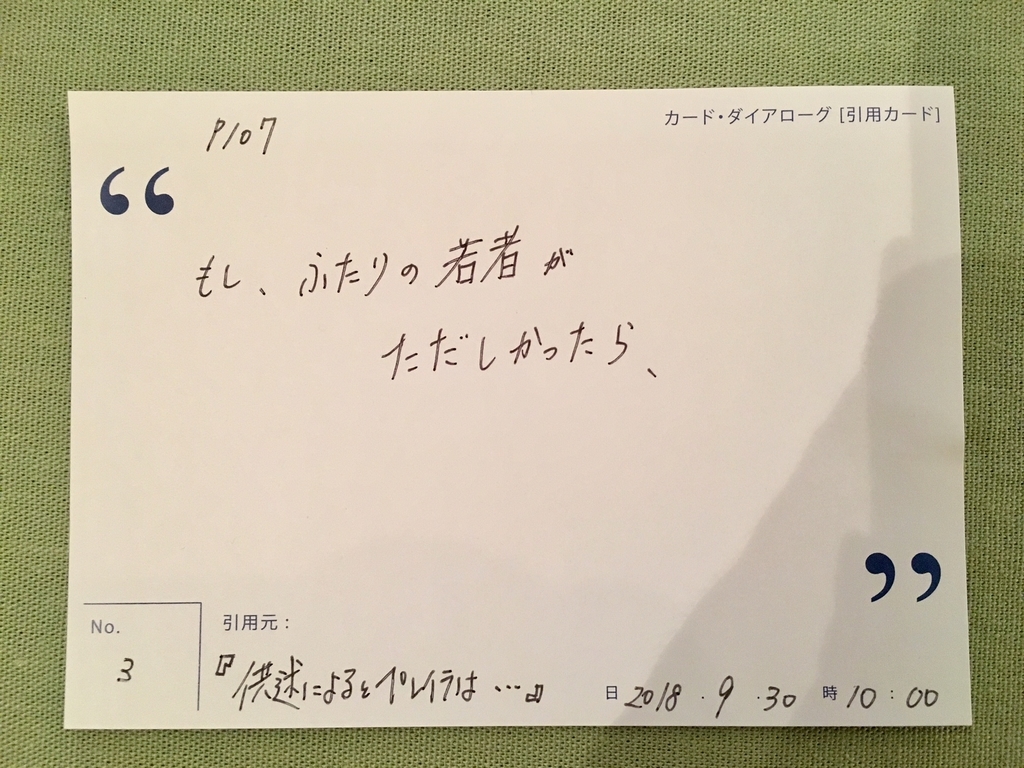 カード・ダイアローグ [引用カード]
P107
“
もし、ふたりの若者が
ただしかったら、
”
No.
3
引用元：
『供述によるとペレイラは…』
日 2018 . 9 . 30 時 10 : 00